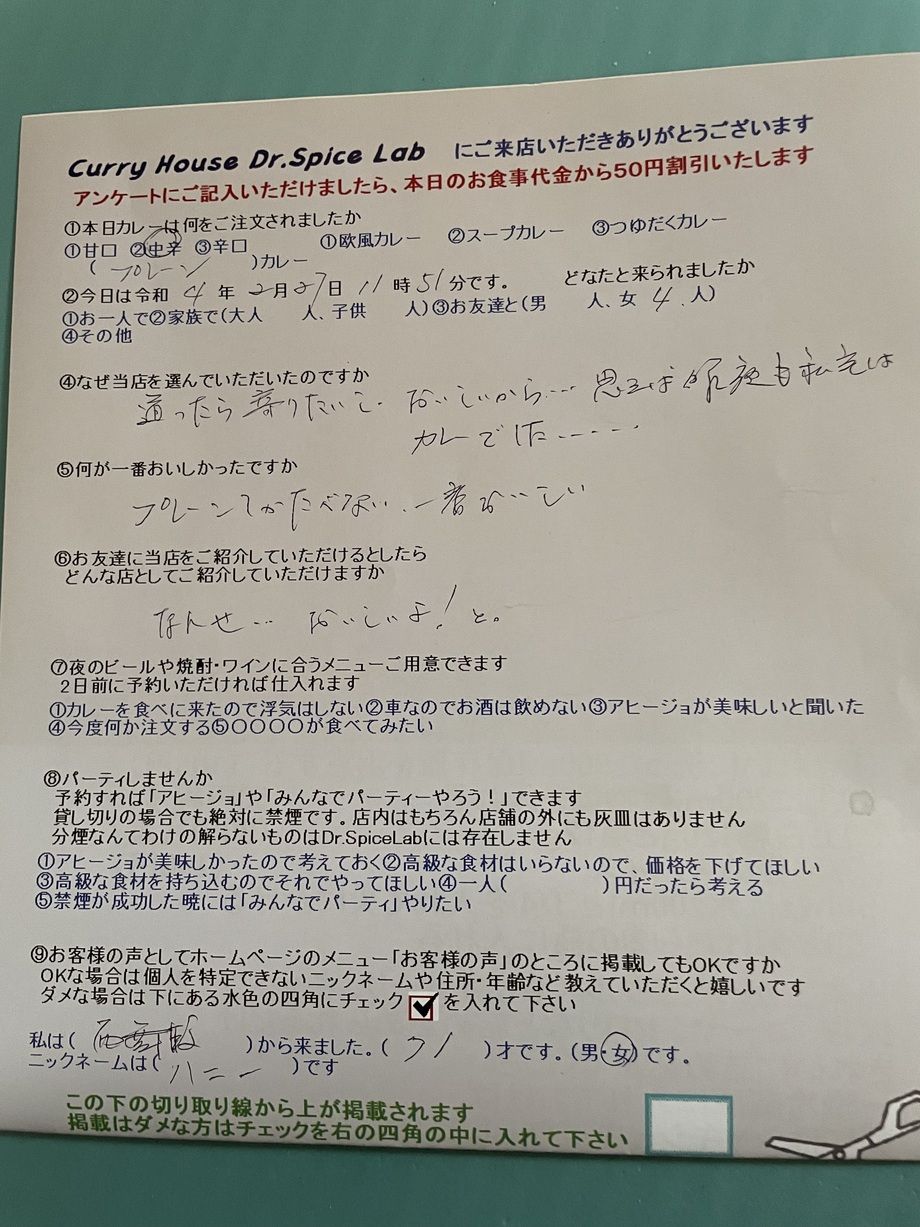 Curry House Dr.Spice Lab にご来店いただきありがとうございます
アンケートにご記入いただけましたら、本日のお食事代金から50円割引いたします
①本日カレーは何をご注文されましたか
①甘口 ②中辛 ③辛口 ①欧風カレー ②スープカレー ③つゆだくカレー
(プレーン)カレー
②今日は令和 4 年 2月27日 11時51分です。 どなたと来られましたか
①お一人で②家族で(大人 人、子供 人)③お友達と(男 人、女 4 人)
④その他
④なぜ当店を選んでいただいたのですか
通ったら寄りたいし おいしいから… 思えば昨夜も私宅は
カレーでした……
⑤何が一番おいしかったですか
プレーンしかたべない、一番おいしい
⑥お友達に当店をご紹介していただけるとしたら
どんな店としてご紹介していただけますか
なんせ… おいしいよ!と。
⑦夜のビールや焼酎・ワインに合うメニューご用意できます
2日前に予約いただければ仕入れます
①カレーを食べに来たので浮気はしない②車なのでお酒は飲めない③アヒージョが美味しいと聞いた
④今度何か注文する⑤〇〇〇〇が食べてみたい
⑧パーティしませんか
予約すれば「アヒージョ」や「みんなでパーティーやろう!」できます
貸し切りの場合でも絶対に禁煙です。店内はもちろん店舗の外にも灰皿はありません
分煙なんてわけの解らないものはDr.SpiceLabには存在しません
①アヒージョが美味しかったので考えておく②高級な食材はいらないので、価格を下げてほしい
③高級な食材を持ち込むのでそれでやってほしい④一人( )円だったら考える
⑤禁煙が成功した暁には「みんなでパーティ」やりたい
⑨お客様の声としてホームページのメニュー「お客様の声」のところに掲載してもOKですか
OKな場合は個人を特定できないニックネームや住所・年齢など教えていただくと嬉しいです
ダメな場合は下にある水色の四角にチェック を入れて下さい
私は( )から来ました。( )才です。(男・女)です。
ニックネームは(ハニー)です
この下の切り取り線から上が掲載されます
掲載はダメな方はチェックを右の四角の中に入れて下さい